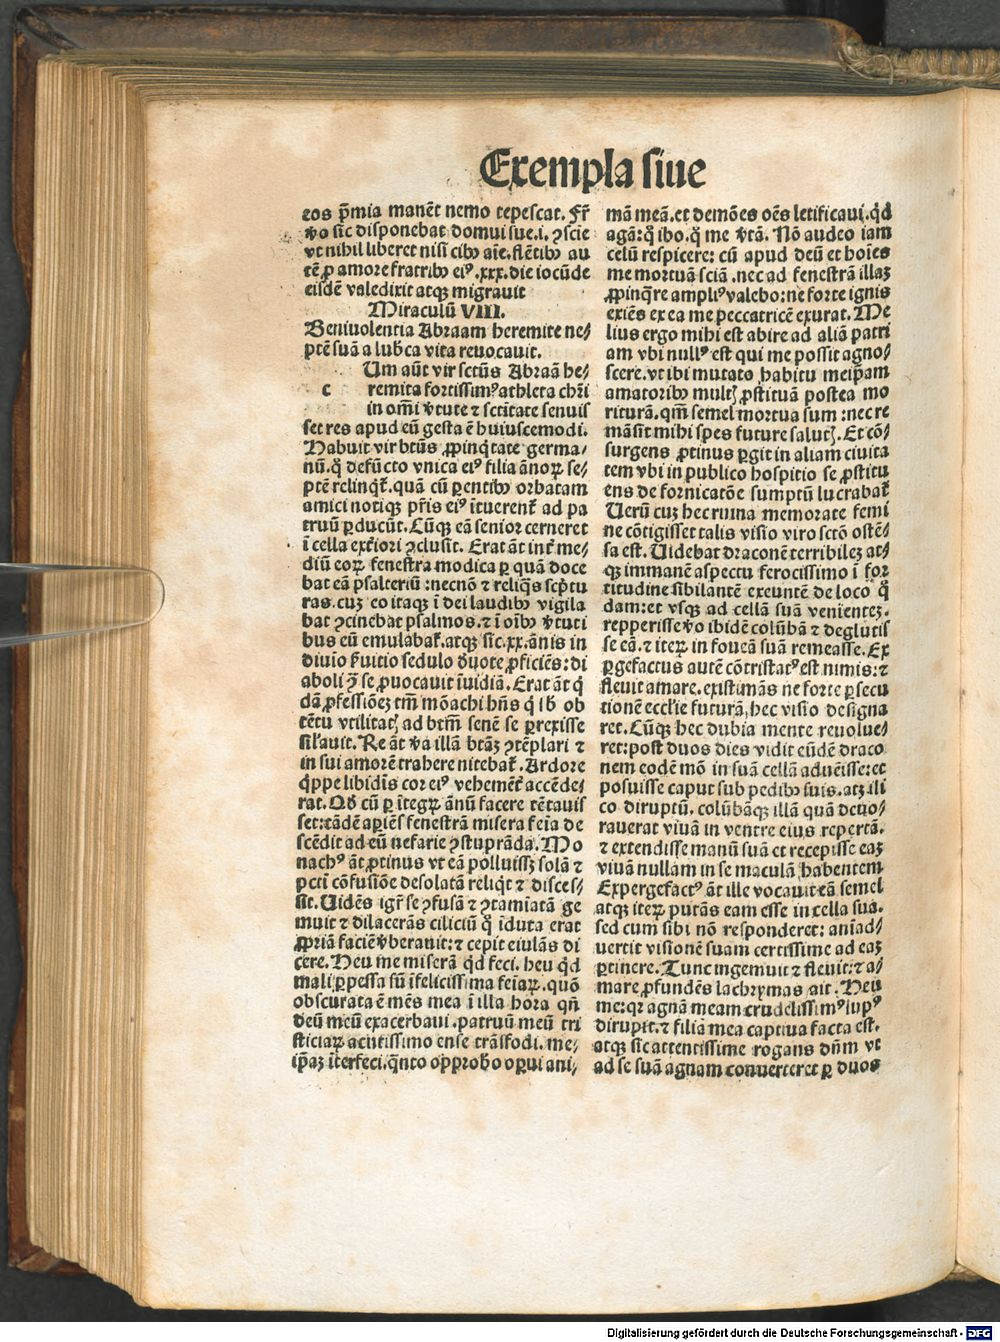 Exempla siue
eos p̄mia manēt nemo tepescat. Fr̄
ꝟo sic disponebat domui sue.i. ꝯscie
vt nihil liberet nisi cibꝰ aīe. flētibꝰ au
tē ꝓ amore fratribꝰ eiꝰ .xxx. die iocūde
eisdē valedixit atqꝫ migrauit
Miraculū VIII.
Beniuolentia Abraam heremite ne⸗
ptē suā a lub̓ca vita reuocauit.
Um aūt vir sctūs Abraā he⸗
c remita fortissimꝰ athleta chr̄i
in om̄i ꝟtute ⁊ sctītate senuis
set res apud eū gesta ē huiuscemodi.
Habuit vir btūs ꝓpinq̄tate germa⸗
nū. q̊ defūcto vnica eiꝰ filia ānoꝝ se⸗
ptē relinq̄t̓. quā cū ꝑentibꝰ orbatam
amici notiqꝫ pr̄is eiꝰ ītuerent̓ ad pa
truū ꝑducūt. Cūqꝫ eā senior cerneret
ī cella ext̓iori ꝯclusit. Erat āt int̓ me⸗
diū eoꝝ fenestra modica ꝑ quā doce
bat eā psalteriū : necnō ⁊ reliq̄s scp̄tu
ras. cuꝫ eo itaqꝫ ī dei laudibꝰ vigila
bat ꝯcinebat psalmos. ⁊ ī oībꝰ ꝟtuti
bus eū emulabat̓. atqꝫ sic .xx. ānis in
diuio s̓uitio sedulo d̓uote ꝓficiēs : di
aboli ꝯ̄ se ꝓuocauit īuidiā. Erat āt q̄
dā ꝓfessiōeꝫ tm̄ mōachi hn̄s q̊ lib̓ ob
tētu vtilitatꝭ ad btm̄ senē se ꝑrexisse
sil̓auit. Re āt ꝟa illā btāꝫ ꝯtēplari ⁊
in sui amorē trahere nitebat̓. Ardore
q̄ppe libidīs cor eiꝰ vehemēt̓ accēde⸗
rat. Qd̓ cū ꝑ ītegꝝ ānū facere tētauis
set : tādē apiēs fenestrā misera feīa de
scēdit ad eū nefarie ꝯstuprāda. Mo
nachꝰ āt ꝓtinus vt eā polluissꝫ solā ⁊
pcti cōfusiōe desolatā reliq̄t ⁊ disces⸗
sit. Uidēs igr̄ se ꝯfusā ⁊ ꝯtamiatā ge
muit ⁊ dilacerās ciliciū q̊ īduta erat
ꝓpriā faciē ꝟberauit : ⁊ cepit eiulās di
cere. Heu me miserā qd̓ feci. heu qd̓
mali ꝑpessa sū īfelicissima feīaꝝ. quō
obscurata ē mēs mea ī illa hora qn̄
deū meū exacerbaui. patruū meū tri
sticiaꝝ acutissimo ense trāsfodi. me⸗
ip̄aꝫ īterfeci. q̄nto opprob̓o oꝑui ani⸗
mā meā. et demōes oēs letificaui. qd̓
agā : q̊ ibo. q̊ me ꝟtā. Nō audeo iam
celū respicere : cū apud deū et hoīes
me mortuā sciā. nec ad fenestrā illaꝫ
ꝓpinq̄re ampliꝰ valebo : ne forte ignis
exiēs ex ea me peccatricē exurat. Me
lius ergo mihi est abire ad aliā patri
am vbi nullꝰ est qui me possit agno⸗
scere. vt ibi mutato habitu meip̄am
amatoribꝰ multꝭ ꝓstituā postea mo
riturā. qm̄ semel mortua sum : nec re
māsit mihi spes future salutꝭ. Et cō⸗
surgens ꝓtinus ꝑgit in aliam ciuita
tem vbi in publico hospitio se ꝓstitu
ens de fornicatōe sumptū lucrabat̓
Uerū cuꝫ hec ruina memorate femi
ne cōtigisset talis visio viro sctō ostē⸗
sa est. Uidebat draconē terribileꝫ at⸗
qꝫ immanē aspectu ferocissimo ī for
titudine sibilantē exeuntē de loco q̊
dam : et vsqꝫ ad cellā suā venienteꝫ.
repperisse ꝟo ibidē colūbā ⁊ deglutis
se eā. ⁊ iteꝝ in foueā suā remeasse. Ex
ꝑgefactus autē cōtristatꝰ est nimis : ⁊
fleuit amare. existimās ne forte ꝑsecu
tionē eccl̓ie futurā, hec visio designa
ret. Cūqꝫ hec dubia mente reuolue⸗
ret : post duos dies vidit eūdē draco
nem eodē mō in suā cellā aduēisse : et
posuisse caput sub pedibꝰ suis. atꝫ ili
co diruptū. colūbāqꝫ illā quā deuo⸗
rauerat viuā in ventre eius repertā.
⁊ extendisse manū suā et recepisse eaꝫ
viuā nullam in se maculā habentem
Expergefactꝰ āt ille vocauit eā semel
atqꝫ iteꝝ putās eam esse in cella sua.
sed cum sibi nō responderet : aniad⸗
uertit visionē suam certissime ad eaꝫ
ꝑtinere. Tunc ingemuit ⁊ fleuit : ⁊ a⸗
mare ꝓfundēs lachrymas ait. Heu
me : qꝛ agnā meam crudelissimꝰ lupꝰ
dirupit. ⁊ filiā mea captiua facta est.
atqꝫ sic attentissime rogans dn̄m vt
ad se suā agnam conuerteret ꝑ duos
Digitalisierung gefördert durch die Deutsche Forschungsgemeinschaft - DFG